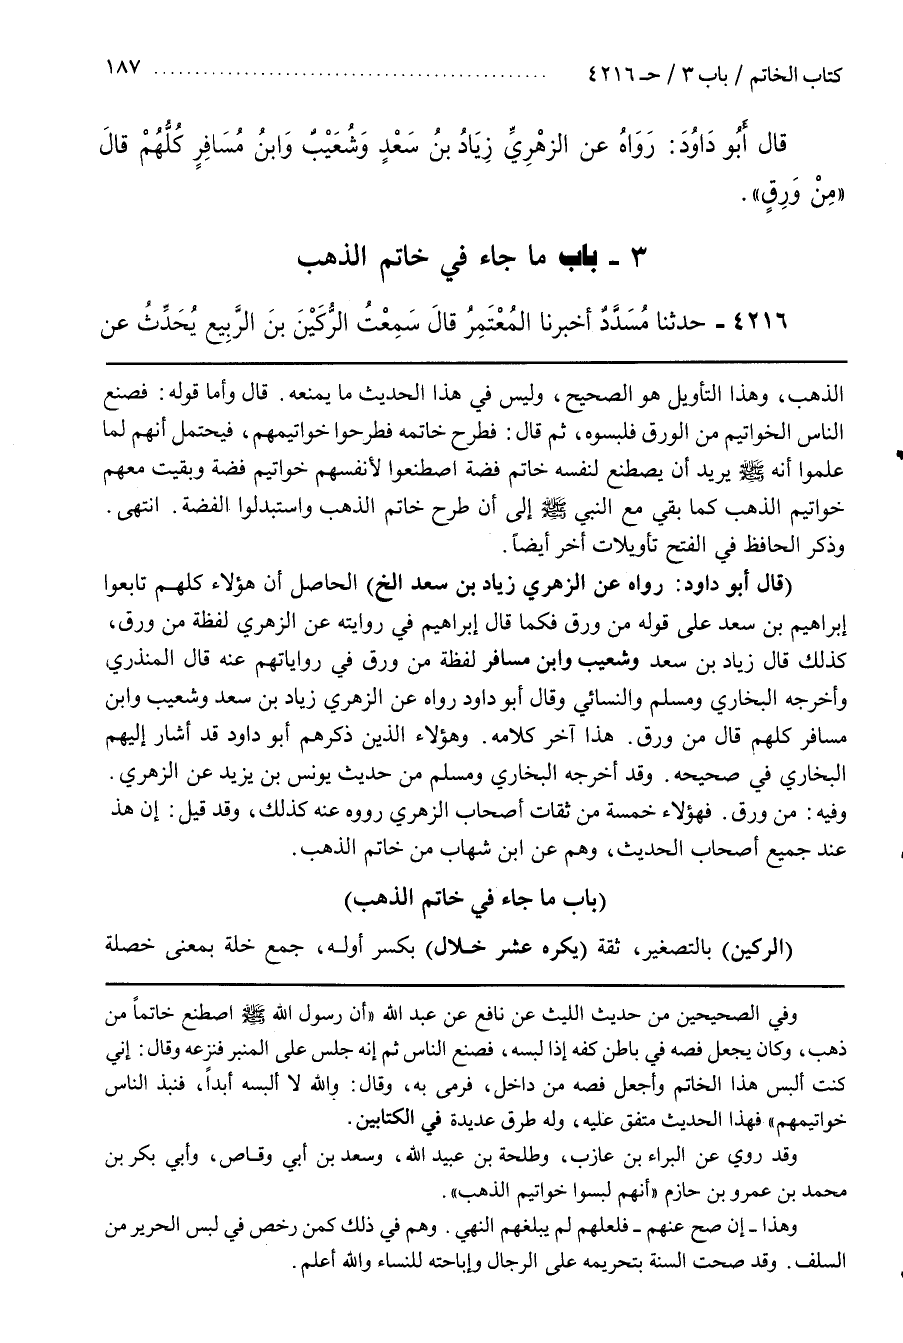 كتاب الخاتم / باب ٣ / حـ ٤٢١٦ ................................................ ١٨٧
قال أَبُو دَاوُدَ: رَوَاهُ عن الزهْرِيِّ زِيَادُ بنُ سَعْدٍ وَشُعَيْبٌ وَابنُ مُسَافِرٍ كُلُّهُمْ قالَ
«مِنْ وَرِقٍ».
٣ ـ باب ما جاء في خاتم الذهب
٤٢١٦ ـ حدثنا مُسَدَّدٌ أخبرنا المُعْتَمِرُ قالَ سَمِعْتُ الرُّكَيْنَ بنَ الرَّبِيع يُحَدِّثُ عن
الذهب، وهذا التأويل هو الصحيح، وليس في هذا الحديث ما يمنعه. قال وأما قوله: فصنع
الناس الخواتيم من الورق فلبسوه، ثم قال: فطرح خاتمه فطرحوا خواتيمهم، فيحتمل أنهم لما
علموا أنه ﷺ يريد أن يصطنع لنفسه خاتم فضة اصطنعوا لأنفسهم خواتيم فضة وبقيت معهم
خواتيم الذهب كما بقي مع النبي ﷺ إلى أن طرح خاتم الذهب واستبدلوا الفضة. انتهى.
وذكر الحافظ في الفتح تأويلات أخر أيضاً.
(قال أبو داود: رواه عن الزهري زياد بن سعد الخ) الحاصل أن هؤلاء كلهم تابعوا
إبراهيم بن سعد على قوله من ورق فكما قال إبراهيم في روايته عن الزهري لفظة من ورق،
كذلك قال زياد بن سعد وشعيب وابن مسافر لفظة من ورق في رواياتهم عنه قال المنذري
وأخرجه البخاري ومسلم والنسائي وقال أبو داود رواه عن الزهري زياد بن سعد وشعيب وابن
مسافر كلهم قال من ورق. هذا آخر كلامه. وهؤلاء الذين ذكرهم أبو داود قد أشار إليهم
البخاري في صحيحه. وقد أخرجه البخاري ومسلم من حديث يونس بن يزيد عن الزهري.
وفيه: من ورق. فهؤلاء خمسة من ثقات أصحاب الزهري رووه عنه كذلك، وقد قيل: إن هذ
عند جميع أصحاب الحديث، وهم عن ابن شهاب من خاتم الذهب.
(باب ما جاء في خاتم الذهب)
(الركين) بالتصغير، ثقة (يكره عشر خلال) بكسر أوله، جمع خلة بمعنى خصلة
وفي الصحيحين من حديث الليث عن نافع عن عبد الله «أن رسول الله ﷺ اصطنع خاتماً من
ذهب، وكان يجعل فصه في باطن كفه إذا لبسه، فصنع الناس ثم إنه جلس على المنبر فنزعه وقال: إني
كنت ألبس هذا الخاتم وأجعل فصه من داخل، فرمى به، وقال: والله لا ألبسه أبداً، فنبذ الناس
خواتيمهم» فهذا الحديث متفق عليه، وله طرق عديدة في الكتابين.
وقد روي عن البراء بن عازب، وطلحة بن عبيد الله، وسعد بن أبي وقاص، وأبي بكر بن
محمد بن عمرو بن حازم «أنهم لبسوا خواتيم الذهب».
وهذا ـ إن صح عنهم ـ فلعلهم لم يبلغهم النهي. وهم في ذلك كمن رخص في لبس الحرير من
السلف. وقد صحت السنة بتحريمه على الرجال وإباحته للنساء والله أعلم.